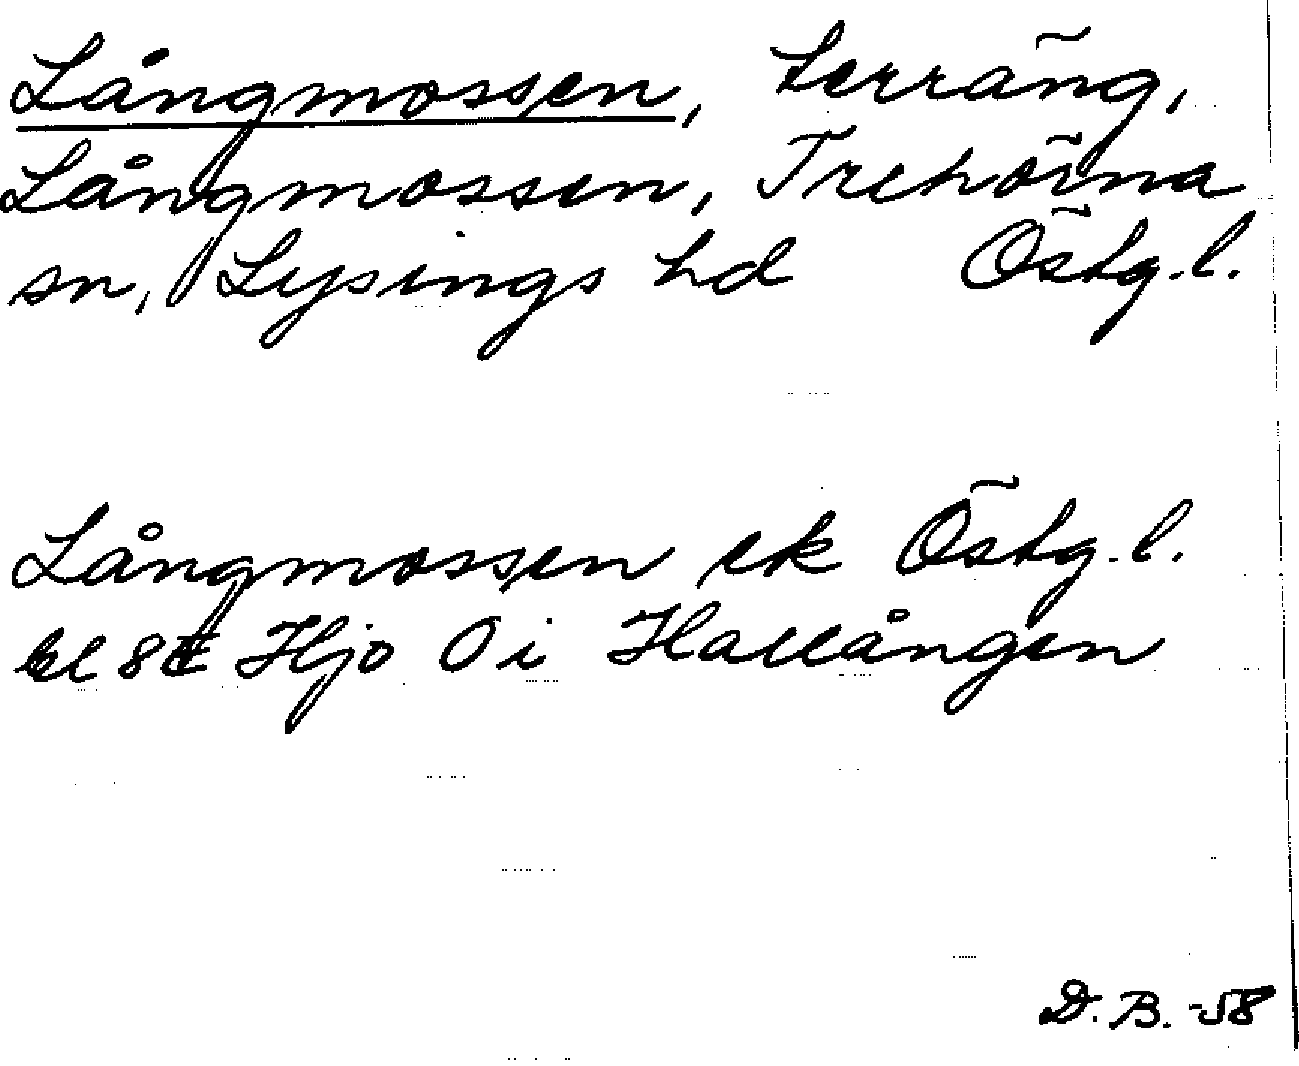 Långmossen, terräng,
Långmossen, Trehörna
sn, Lysings hd Östg.l.
Långmossen ek Östg.l.
bl 8E Hjo O i Hallången
D.B. -58